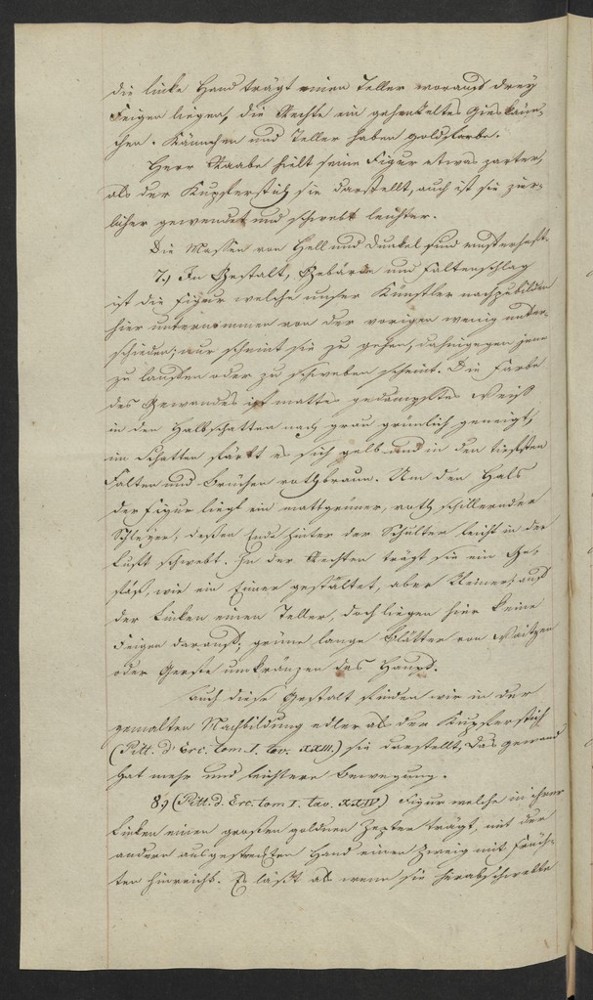 die linke Hand trägt einen Teller worauf drey
Feigen liegen, die Rechte ein gehenkeltes Gieskänn-
chen. Kännchen und Teller haben Goldfarbe.
Herr Raabe hielt seine Figur etwas zarter,
als der Kupferstich sie darstellt, auch ist sie zier-
licher gewendet und schwebt leichter.
Die Massen von Hell und Dunkel sind meisterhaft.
7.) In Gestalt, Gebärde und Faltenschlag
ist die Figur welche unser Künstler nachzubilden
hier unternommen von der vorigen wenig unter-
schieden; nur scheint sie zu gehen, dahingegen jene
zu laufen oder zu schweben scheint. Die Farbe
des Gewandes ist mattes gedämpftes Weiß
in den Halbschatten nach grau grünlich geneigt,
im Schatten färbt es sich gelb und in den tiefsten
Falten und Brüchen rothbraun. Um den Hals
der Figur liegt ein mattgrüner, roth schillernder
Schleyer, dessen Ende hinter der Schulter leicht in der
Luft schwebt. In der Rechten trägt sie ein Ge-
fäß, wie ein Eimer gestaltet, aber kleiner auf
der Linken einen Teller, doch liegen hier keine
Feigen darauf; grüne lange Blätter von Waitzen
oder Gerste umkränzen das Haupt.
Auch diese Gestalt finden wir in der
gemalten Nachbildung edler als der Kupferstich
(Pitt. d'Erc. tom. I. tav. XXIII.) sie darstellt, das Gewand
hat mehr und leichtere Bewegung.
8.) (Pitt. d. Erc. tom I. tav. XXIV) Figur welche in ihrer
Linken einen großen goldnen Zepter trägt, mit der
andern ausgestreckten Hand einen Zweig mit Früch-
ten hinreicht. Es läßt als wenn sie herabschwebte